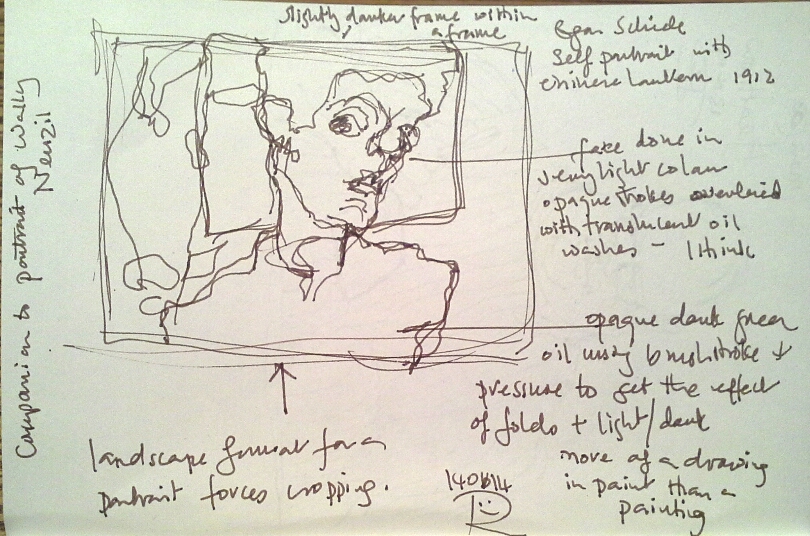 slightly darker frame within
a frame
Egon Schiele
Self portrait with
Chinese Lantern 1912
Companion to portrait of Wally
Neuzil
face done in
very light colour
opaque strokes overlaid
with translucent oil
washes - I think
opaque dark green
oil using brushstroke +
pressure to get the effect
of folds + light/dark
more of a drawing
in paint than a
painting
landscape format for a
portrait forces cropping.
140614
R